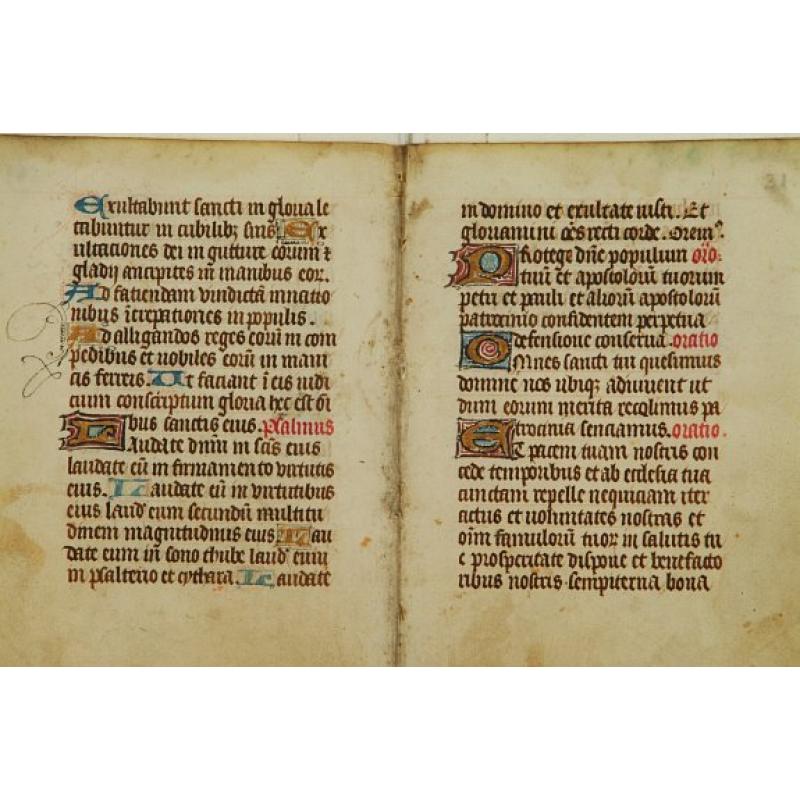 Exultabunt sancti in gloria le
tabuntur in cubilibȝ suis Ex
ultaciones dei in gutture eorum ⁊
gladij ancipites in̄ manibus eor.
Ad fatiendam vindictā in nacio
nibus īcrepationes in populis.
Ad alligandos reges eorū in com
pedibus et nobiles eorū in mani
cis ferreis. Ut faciant ī eis iudi
cium conscriptum gloria hec est oī
bus sanctis eius. psalmus
Laudate dnm̄ in scīs eius
laudate eū in firmamento virtutis
eius. Laudate eū in virtutibus
eius laud' eum secundū multitu
dinem magnitudinis eius Lau
date eum in̄ sono thube laud' eum
in psalterio et cythara. Laudate
31
in domino et exultate iusti. Et
gloriamini oēs recti corde. Orem⁹.
Protege dn̄e populum orō.
tuū et apostolorū tuorum
petri et pauli et aliorū apostolorū
patrocinio confidentem perpetua
defensione conserua. oratio
Omnes sancti tui quesumus
domine nos ubiqȝ adiuuent ut
dum eorum merita recolimus pa
trocinia senciamus. oratio.
Et pacem tuam nostris con
cede temporibus et ab ecclesia tua
cunctam repelle nequiciam iter
actus et uoluntates nostras et
oīm famulorū tuor in salutis tu
e prosperitate dispone et benefacto
ribus nostris sempiterna bona